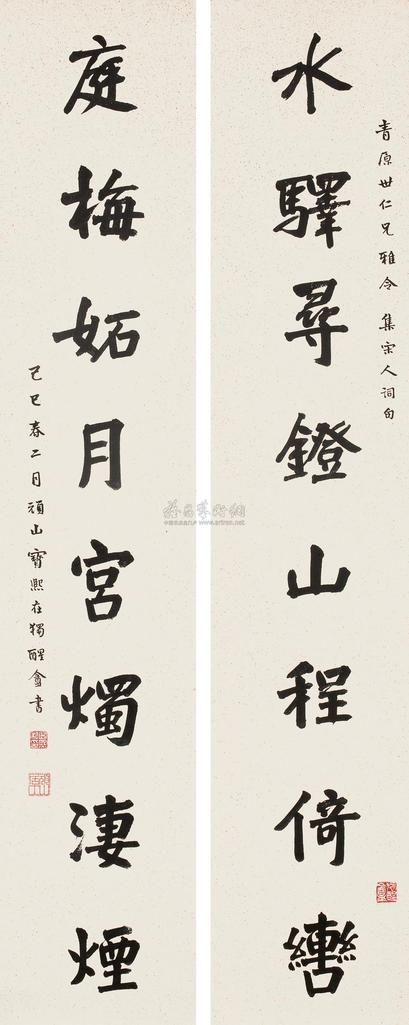 青原世仁兄雅令 集宋人詞句
水驛尋鐙山程倚轡
庭梅妬月宮燭淒煙
己巳春二月頑山寶熙在獨醒盦書
www.artron.net